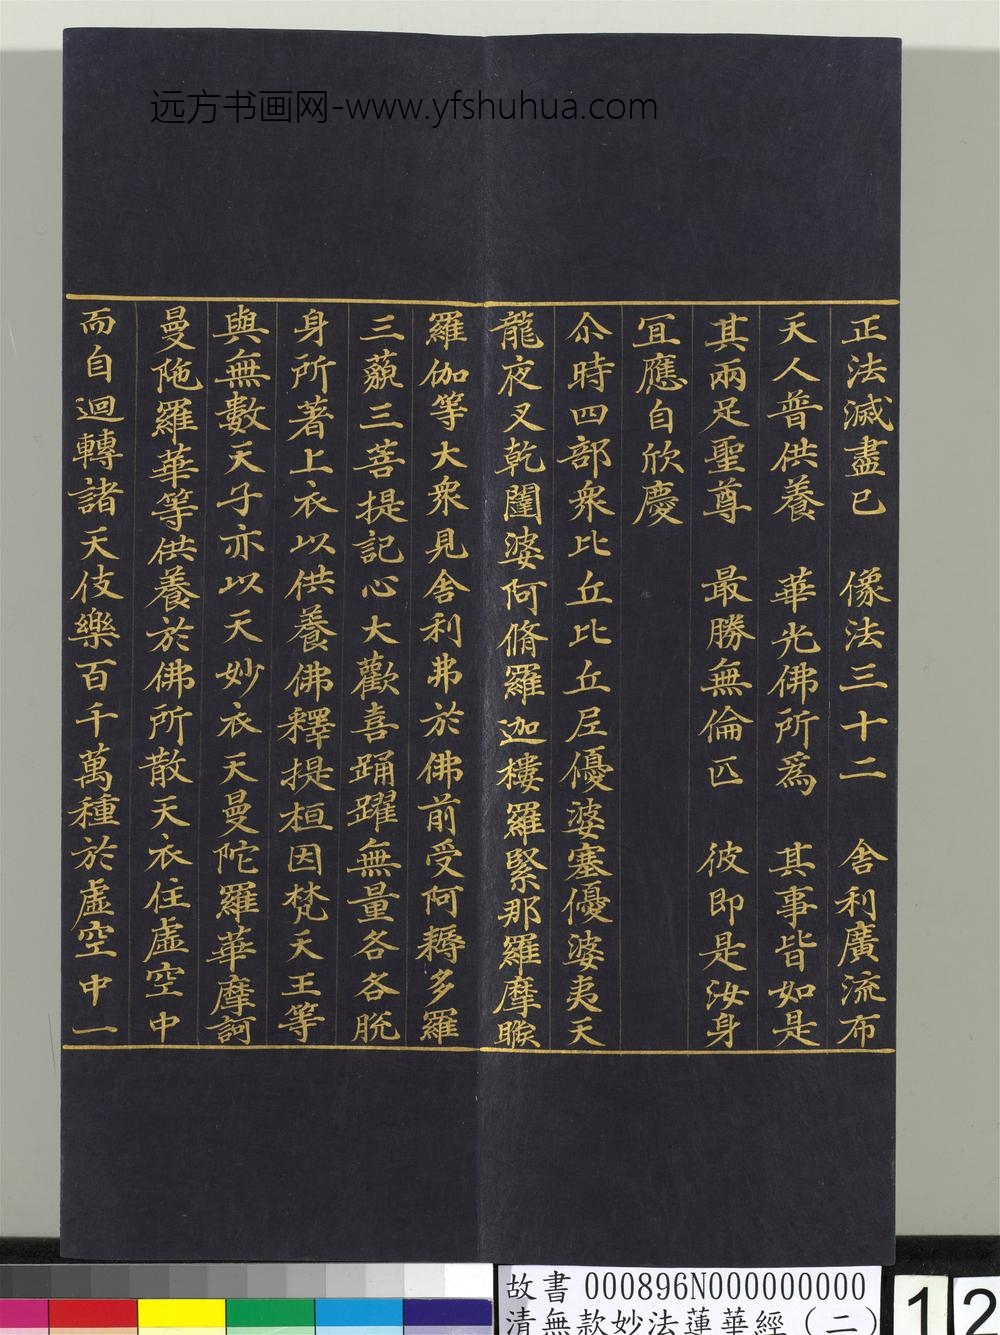 远方书画网-www.yfshuhua.com
正法滅盡已 像法三十二 舍利廣流布
天人普供養 華光佛所爲 其事皆如是
其兩足聖尊 最勝無倫匹 彼即是汝身
冝應自欣慶
尒時四部衆比丘比丘尼優婆塞優婆夷天
龍夜叉乾闥婆阿脩羅迦樓羅緊那羅摩睺
羅伽等大衆見舍利弗於佛前受阿耨多羅
三藐三菩提記心大歡喜踊躍無量各各脫
身所著上衣以供養佛釋提桓因梵天王等
與無數天子亦以天妙衣天曼陀羅華摩訶
曼陁羅華等供養於佛所散天衣住虛空中
而自迴轉諸天伎樂百千萬種於虛空中一
故書 000896N000000000
清無款妙法蓮華經（二）
12